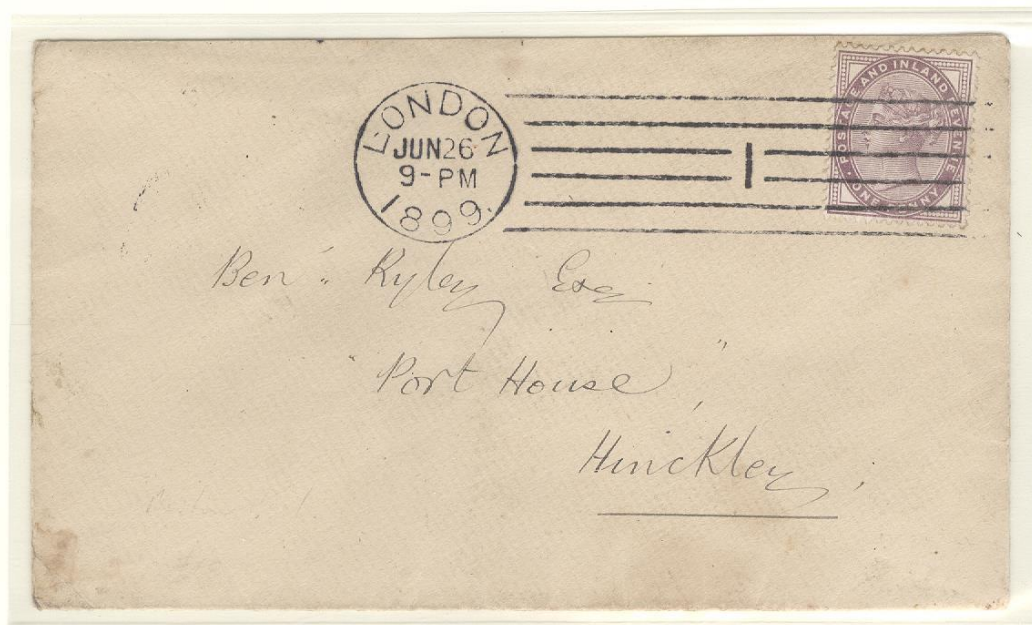 LONDON
JUN 26
9-PM
1899.
1
POSTAGE AND INLAND REVENUE
ONE PENNY
Ben" Ryley Esq
"Port House",
Hinckley,